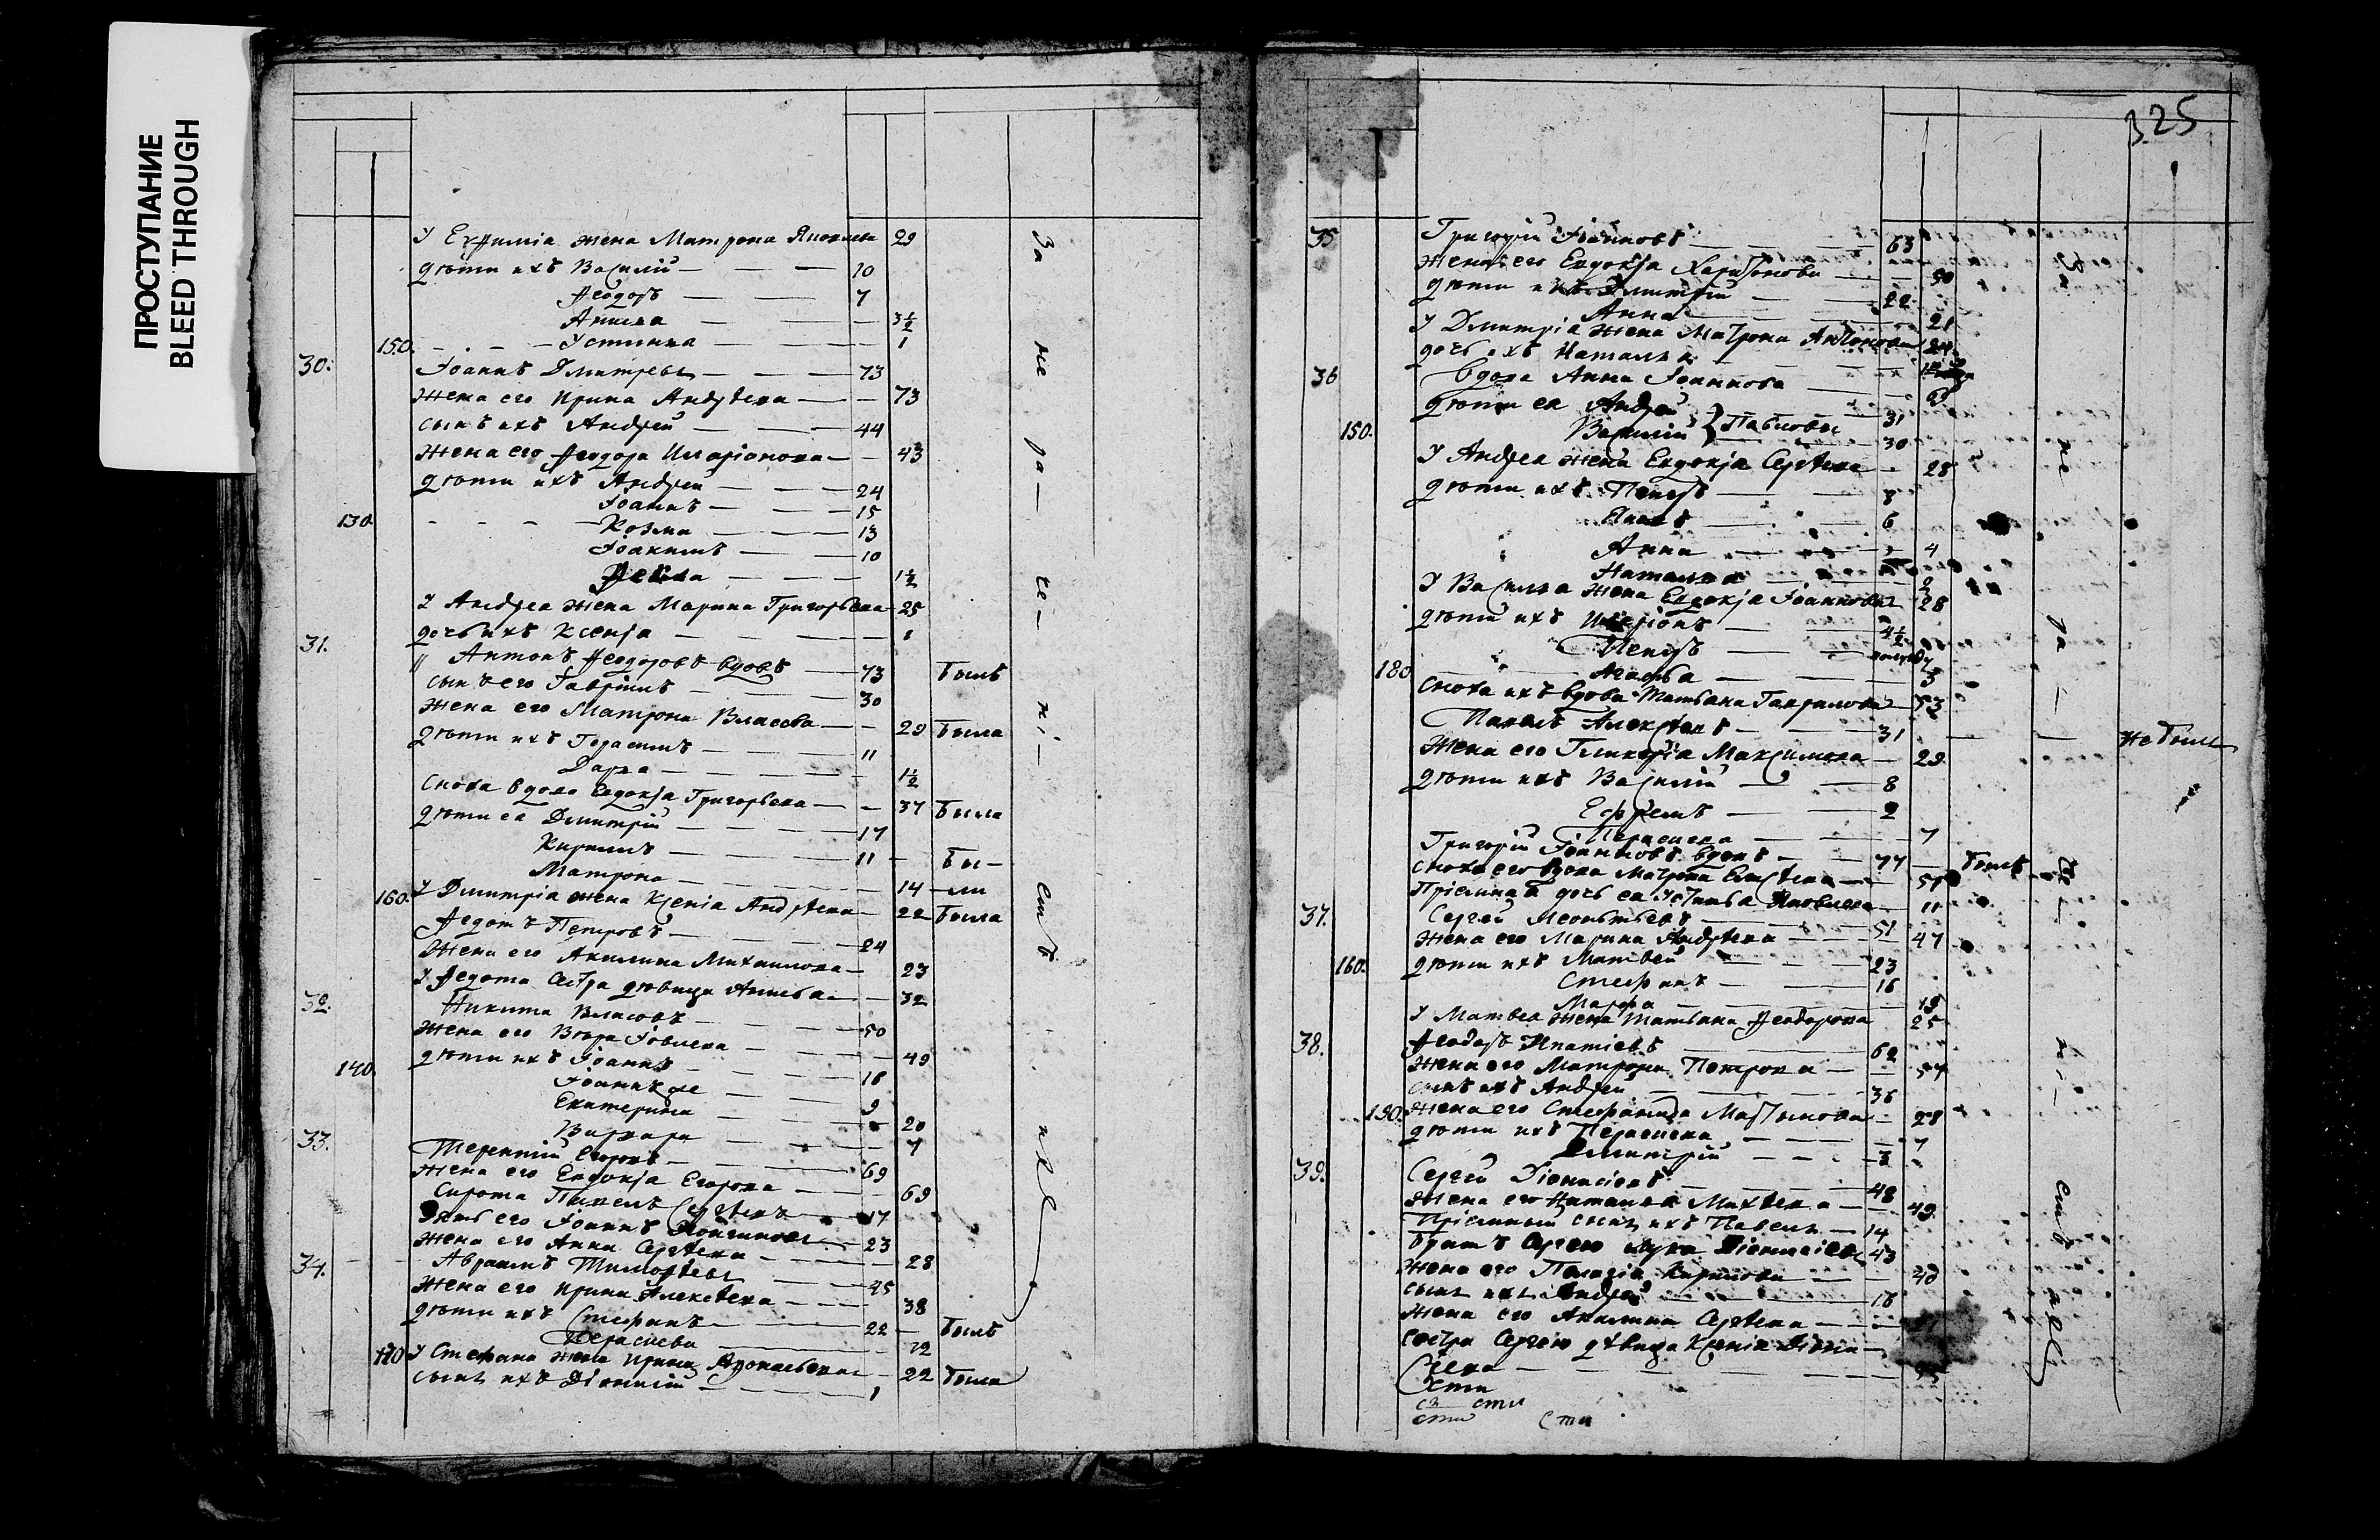 ПРОСТУПАНИЕ
BLEED THROUGH
У Ехфимiа жена Матрона Яковлева 29
дѣти ихъ Василiй 10
Ѳеодоръ 7
Анисiа 3½
150. Устинiа 1
30. Iоаннъ Дмитрiевъ 73
жена его Ирина Андрѣева 73
сынъ ихъ Андрей 44
жена его Ѳеодора Иларiонова 43
дѣти ихъ Андрей 24
Iоаннъ 15
130. Козма 13
Iоакимъ 10
1½
У Андреа жена Марина Григорьева 25
дочь ихъ Ксенiа 1
31. Антонъ Ѳеодоровъ вдовъ 73 былъ
сынъ его Гаврiилъ 30
жена его Матрона Власова 29 была
дѣти ихъ Герасимъ 11
Дарiа 1½
сноха вдова Евдокiа Григорьева 37 была
дѣти еа Дмитрiй 17
Кирилъ 11 бы-
Матрона 14 -ли
160. У Дмитрiа жена Ксенiа Андрѣева 22 была
Ѳедотъ Петровъ 24
Жена его Акилина Михаилова 23
У Ѳедота сестра дѣвица 32
32. Никита Власовъ 50
жена его Вѣра Iовлева 49
дѣти ихъ Iоаннъ 18
140. Iоаннъ же 9
Екатерина 20
Варвара 7
33. Терентiй Егоровъ 69
жена его Евдокiа Егорова 69
Сирота Павелъ Сергѣевъ 17
Зять его Iоаннъ 23
жена его Анна Сергѣева 28
34. Авраамъ Тимоѳѣевъ 45
жена его Ирина Алексѣева 38
дѣти ихъ Стефанъ 22 былъ
Перасцева 12
170 У Стефана жена Ирина 22 была
сынъ ихъ Дiонисiй 1
За не ра- че- нi- емъ ихъ
325
35 Григорiй Iоанновъ 63
жена его Евдокiа Харитонова 50
дѣти ихъ Дмитрiй 22
Анна 21
У Дмитрiа жена Матрона Антонова 24
дочь ихъ Наталья
36 Вдова Анна Iоаннова
дѣти еа Андрей } Павловы 31
150. Василiй 30
У Андреа жена Евдокiа Сергѣева 28
дѣти ихъ Петръ 8
6
Анна 4
Наталья 2
У Василья жена Евдокiа Iоаннова 28
дѣти ихъ Иларiонъ 4½
Петръ
180. Агафья 3
сноха ихъ вдова Татьана Гаврилова 53
Павелъ Алексѣевъ 31 не былъ
жена его Гликерiа Максимова 29
дѣти ихъ Василiй 8
Ефремъ 2
Перасцева 7
Григорiй Iоанновъ вдовъ 77 былъ
сноха его вдова Матрона 51
Прiемнаа дочь еа Устинья Яковлева 11
37. Сергей Леонтьевъ 51
жена его Марина Андрѣева 47
160. дѣти ихъ Матвей 23
Стефанъ 16
Марфа 19
У Матвеа жена Татьана Ѳеодорова 25
38. Ѳеодоръ Ипатiевъ 62
жена его Матрона Петрова 57
сынъ ихъ Андрей 36
190. жена его Стефанида Мартынова 28
дѣти ихъ Перасцева 7
Дмитрiй 3
39. Сергей Дiонисiевъ 48
жена его Наталья Михѣева 49
Прiемный сынъ ихъ Павелъ 14
братъ Сергею Лука Дiонисiевъ 43
жена его Пелагiа Кирилова 40
сынъ ихъ Андрей 18
жена его Акилина Сергѣева
сестра Сергею дѣвица Ксенiа Дiони-
сiева
За не ра- че- нi- емъ ихъ